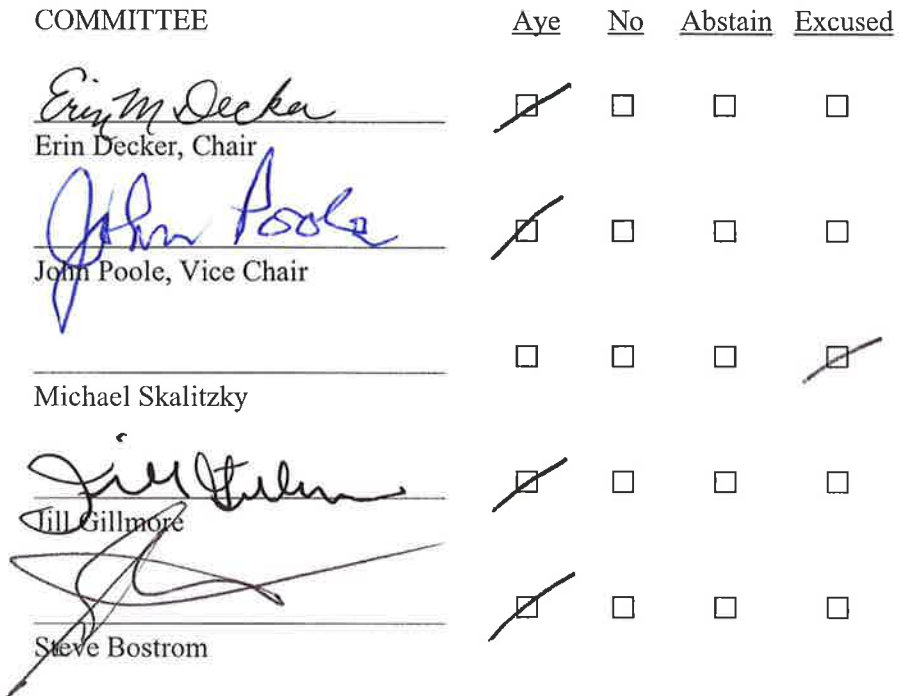 COMMITTEE Aye No Abstain Excused
Erin M Decker
Erin Decker, Chair
John Poole
John Poole, Vice Chair
Michael Skalitzky
Jill Gillmore
Steve Bostrom